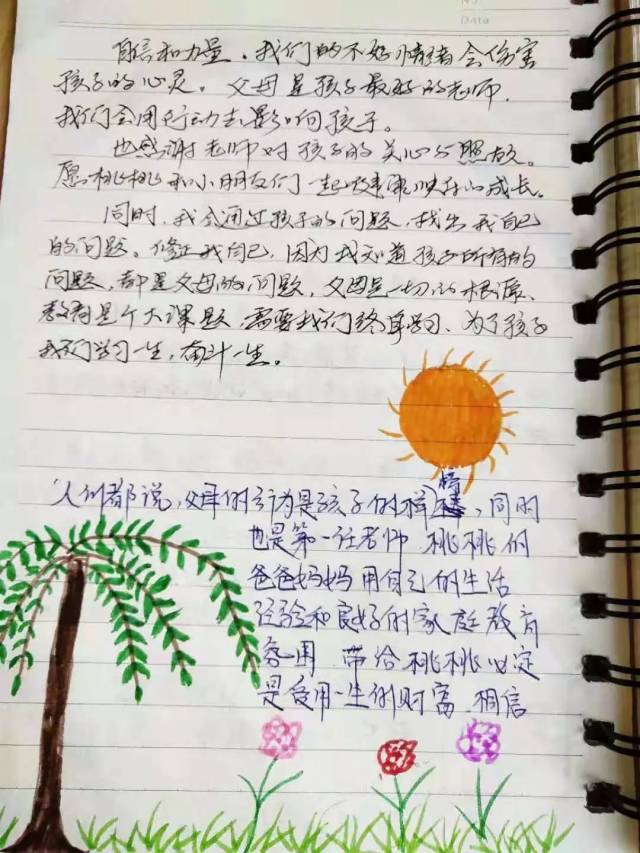 Data
自信和力量。我们的不好情绪会伤害
孩子的心灵。父母是孩子最好的老师.
我们会用行动去影响孩子。
也感谢老师对孩子的关心与照故。
愿桃桃和小朋友们一起健康快乐的成长。
同时,我会通过孩子的问题,找出我自己
的问题。修正我自己,因为我知道孩子所有的
问题,都是父母的问题,父母是一切的根源、
教育是个大课题,需要我们终身学习、为了孩子
我们学习一生,奋斗一生。
人们都说,父母的行为是孩子的榜样,同时
也是第一任老师 桃桃的
爸爸妈妈用自己的生活
经验和良好的家庭教育
氛围 带给桃桃必定
是受用一生的财富 相信